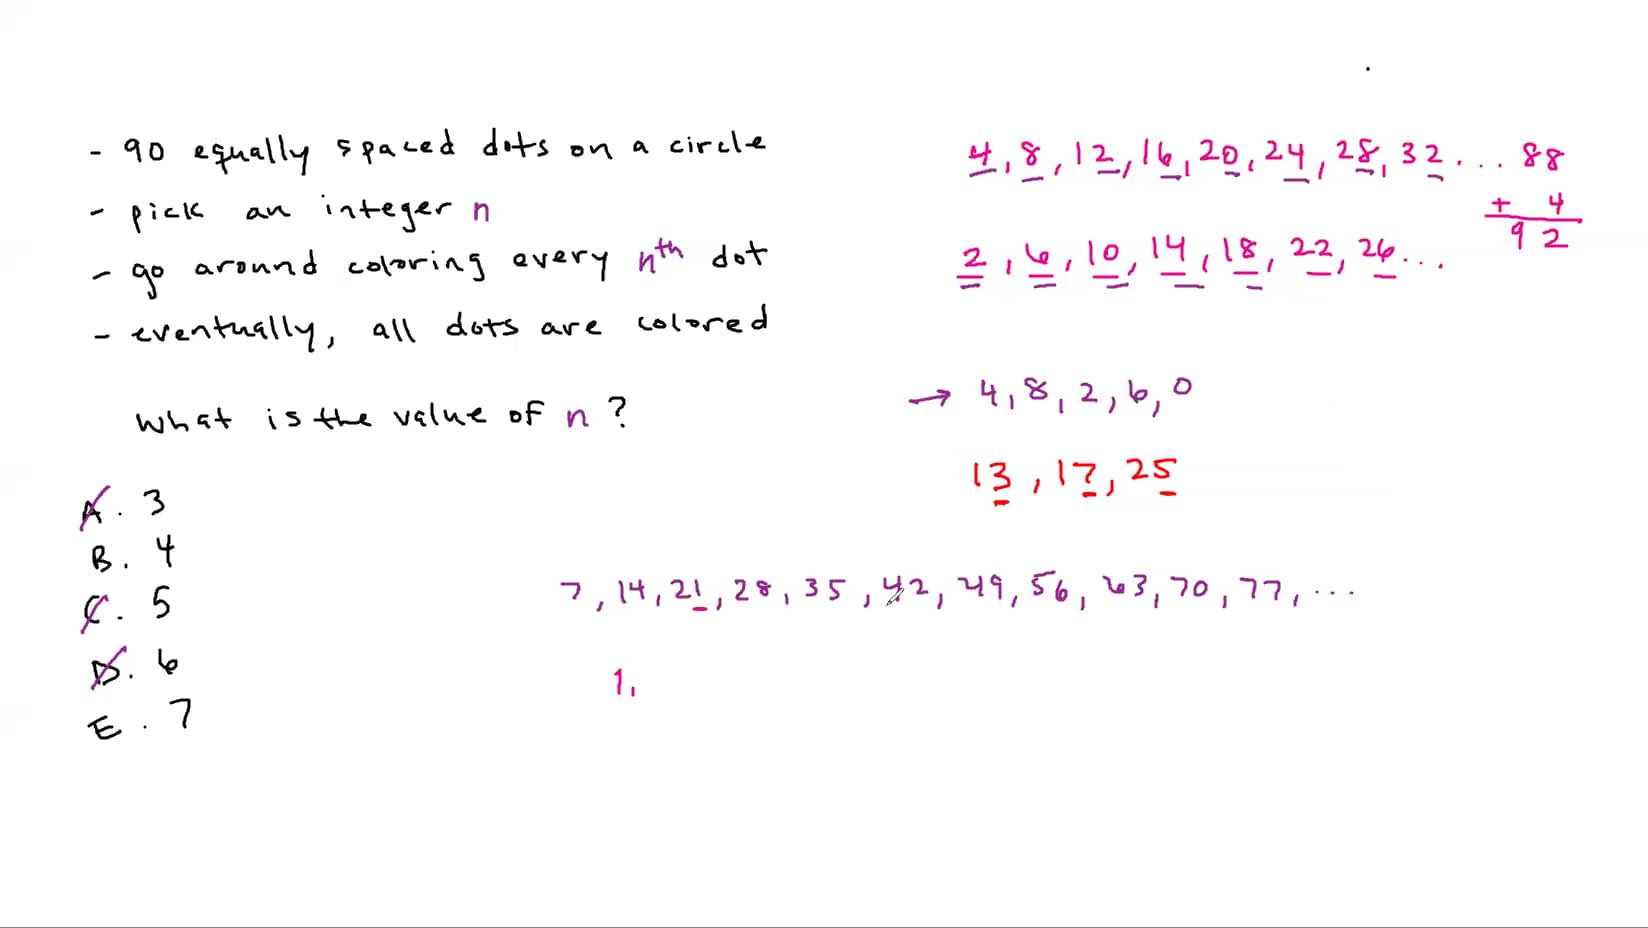 - 90 equally spaced dots on a circle
- pick an integer n
- go around coloring every nth dot
- eventually, all dots are colored
What is the value of n ?
A. 3
B. 4
C. 5
D. 6
E. 7
4, 8, 12, 16, 20, 24, 28, 32 ... 88
+ 4
92
2, 6, 10, 14, 18, 22, 26 ...
→ 4, 8, 2, 6, 0
13, 17, 25
7, 14, 21, 28, 35, 42, 49, 56, 63, 70, 77, ...
1,